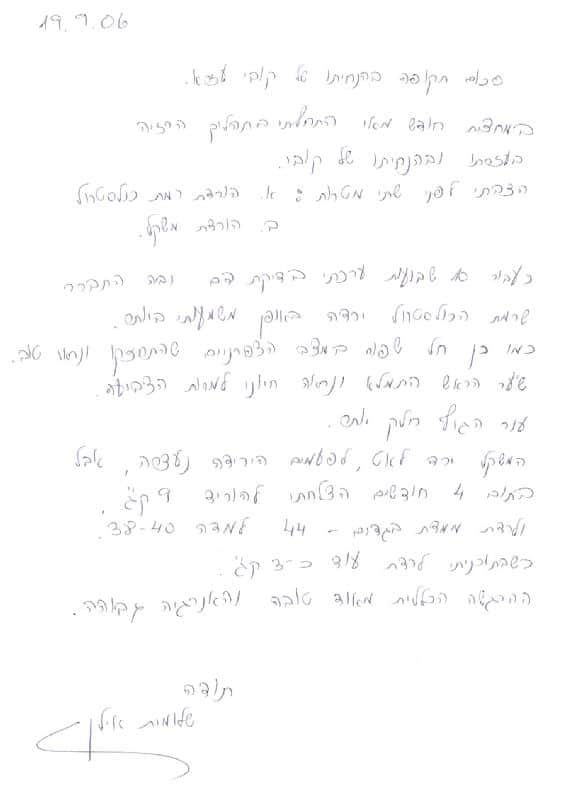 19.9.06
סכום תקופה בהנחיתו של קובי עזרא.
במחצית חודש מאי התחלתי בתהליך הרזיה
בעזרתו ובהנחיתו של קובי.
הצבתי לפני שתי מטרות: א. הורדת רמת כולסטרול
ב. הורדת משקל.
כעבור שבועות ערכתי בדיקת דם ובה התברר
שרמת הכולסטרול ירדה באופן משמעותי ביותר.
כמו כן חל שפור במצב הצפרניים שהתחזקו ונראו טוב.
שער הראש התמלא ונראה חיוני למרות הצביעה.
עור הגוף חלק יותר.
המשקל ירד לאט, לפעמים הירידה נעצרה, אבל
בתוך 4 חודשים הצלחתי להוריד 9 ק"ג,
ולרדת ממדת בגדים - 44 למדה 38-40.
כשבתוכניתי לרדת עוד כ-3 ק"ג.
ההרגשה הכללית מאוד טובה והאנרגיה גבוהה.
תודה
שלומית אילן